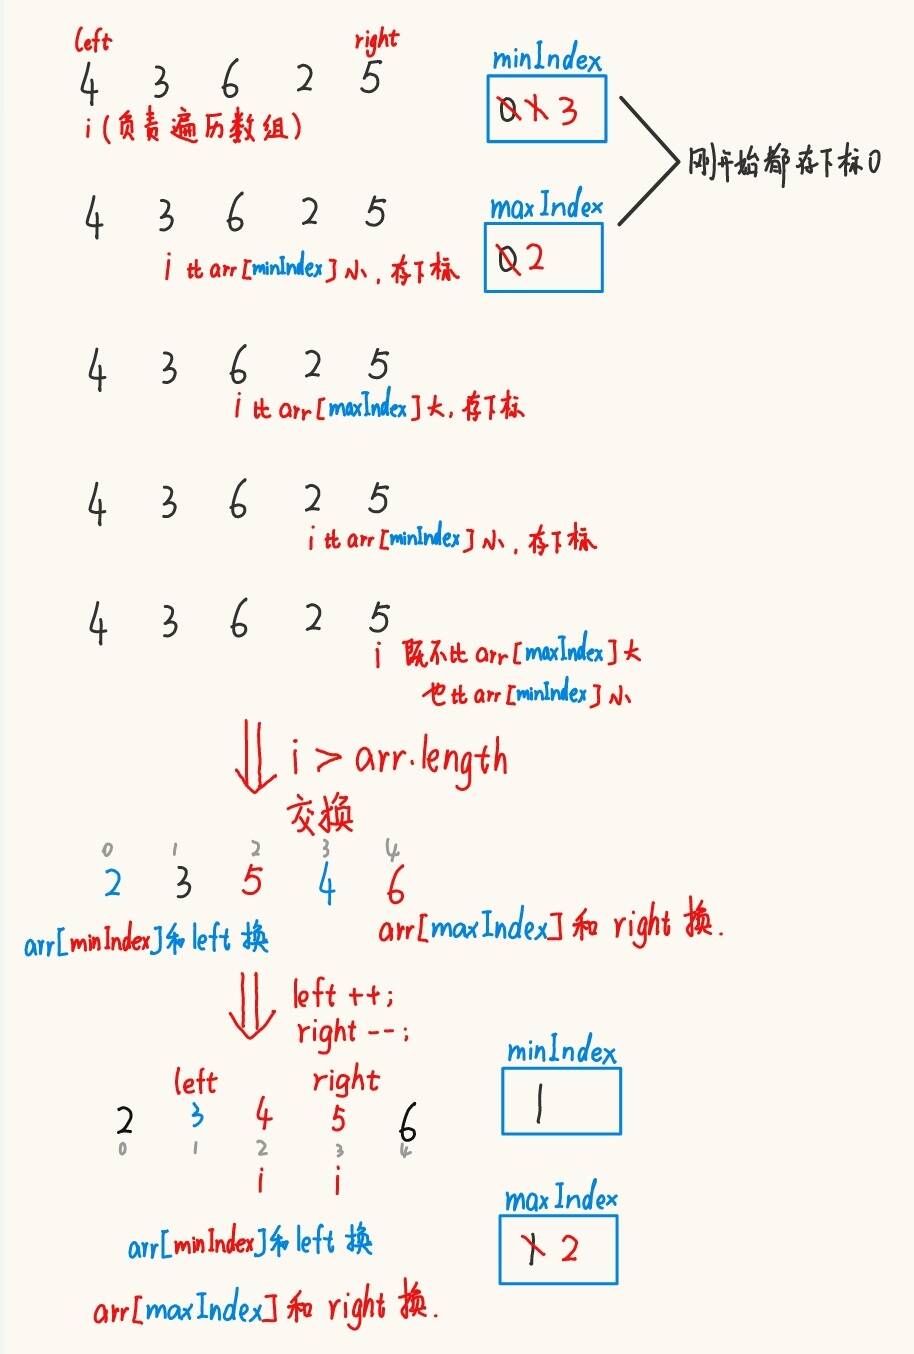 left right
4 3 6 2 5
i (负责遍历数组)
minIndex
0 1 3
刚开始都存下标0
maxIndex
0 2
4 3 6 2 5
i 比arr[minIndex]小，存下标
4 3 6 2 5
i 比arr[maxIndex]大，存下标
4 3 6 2 5
i 比arr[minIndex]小，存下标
4 3 6 2 5
i 既不比arr[maxIndex]大
也比arr[minIndex]小
i > arr.length
交换
0 1 2 3 4
2 3 5 4 6
arr[minIndex]和left 换
arr[maxIndex]和 right 换.
left ++;
right --;
left right
2 3 4 5 6
0 1 2 3 4
i i
minIndex
1
maxIndex
1 2
arr[minIndex]和left 换
arr[maxIndex]和 right 换.